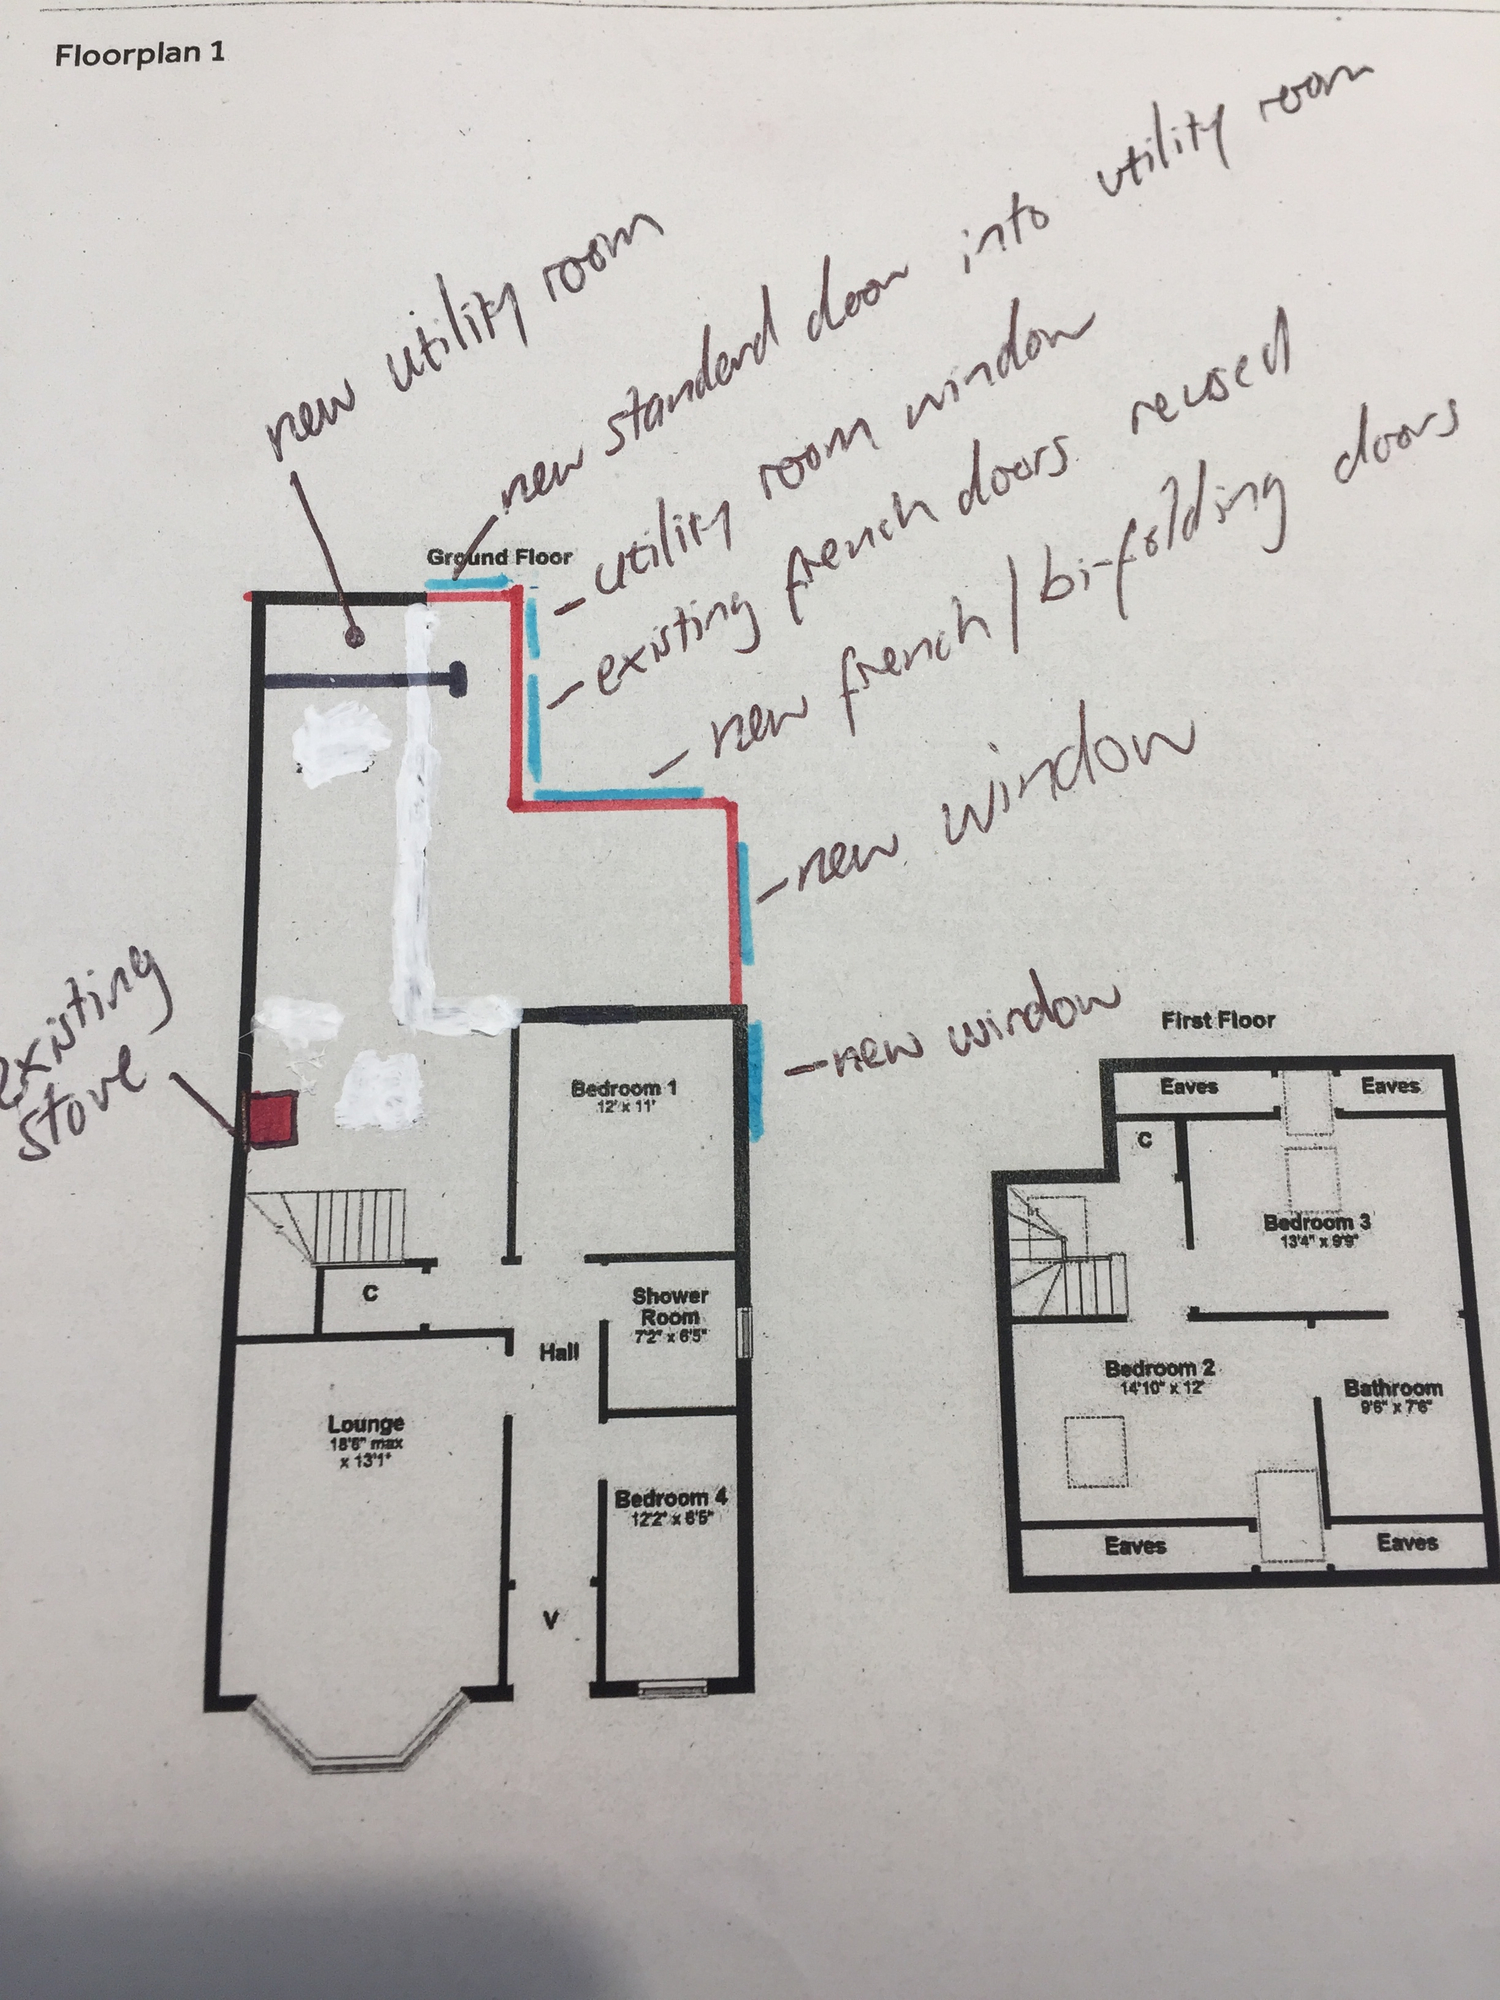 Floorplan 1
new utility room
new standard door into utility room
utility room window
existing french doors reused
new french/bi-folding doors
new window
new window
existing
stove
Ground Floor
Bedroom 1
12' x 11'
C
Shower
Room
7'2" x 6'5"
Hall
Lounge
18'6" max
x 13'1"
Bedroom 4
12'2" x 6'5"
V
First Floor
Eaves
Eaves
C
Bedroom 3
13'4" x 9'9"
Bedroom 2
14'10" x 12'
Bathroom
9'6" x 7'6"
Eaves
Eaves